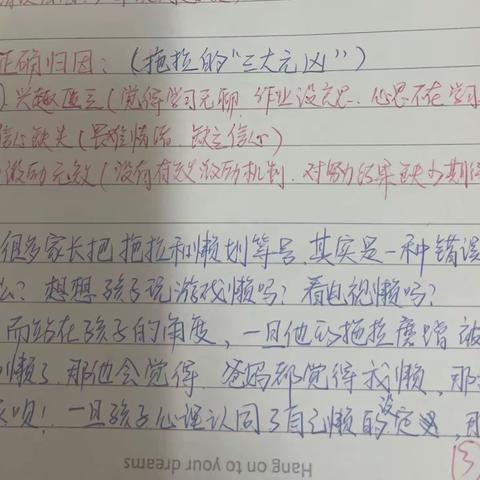 正确归因：（拖拉的“三大元凶”）
兴趣匮乏（觉得学习无聊，作业没意思，心思不在学习
信心缺失（畏难情绪，缺乏信心）
激励无效（没有有效激励机制，对努力结果缺少期待
很多家长把拖拉和懒划等号，其实是一种错误
想想孩子玩游戏懒吗？看电视懒吗？
而站在孩子的角度，一旦他的拖拉磨蹭被
懒了，那他会觉得，爸妈都觉得我懒，那
呗！一旦孩子心理认同了自己懒的设定，那
Hang on to your dreams
③